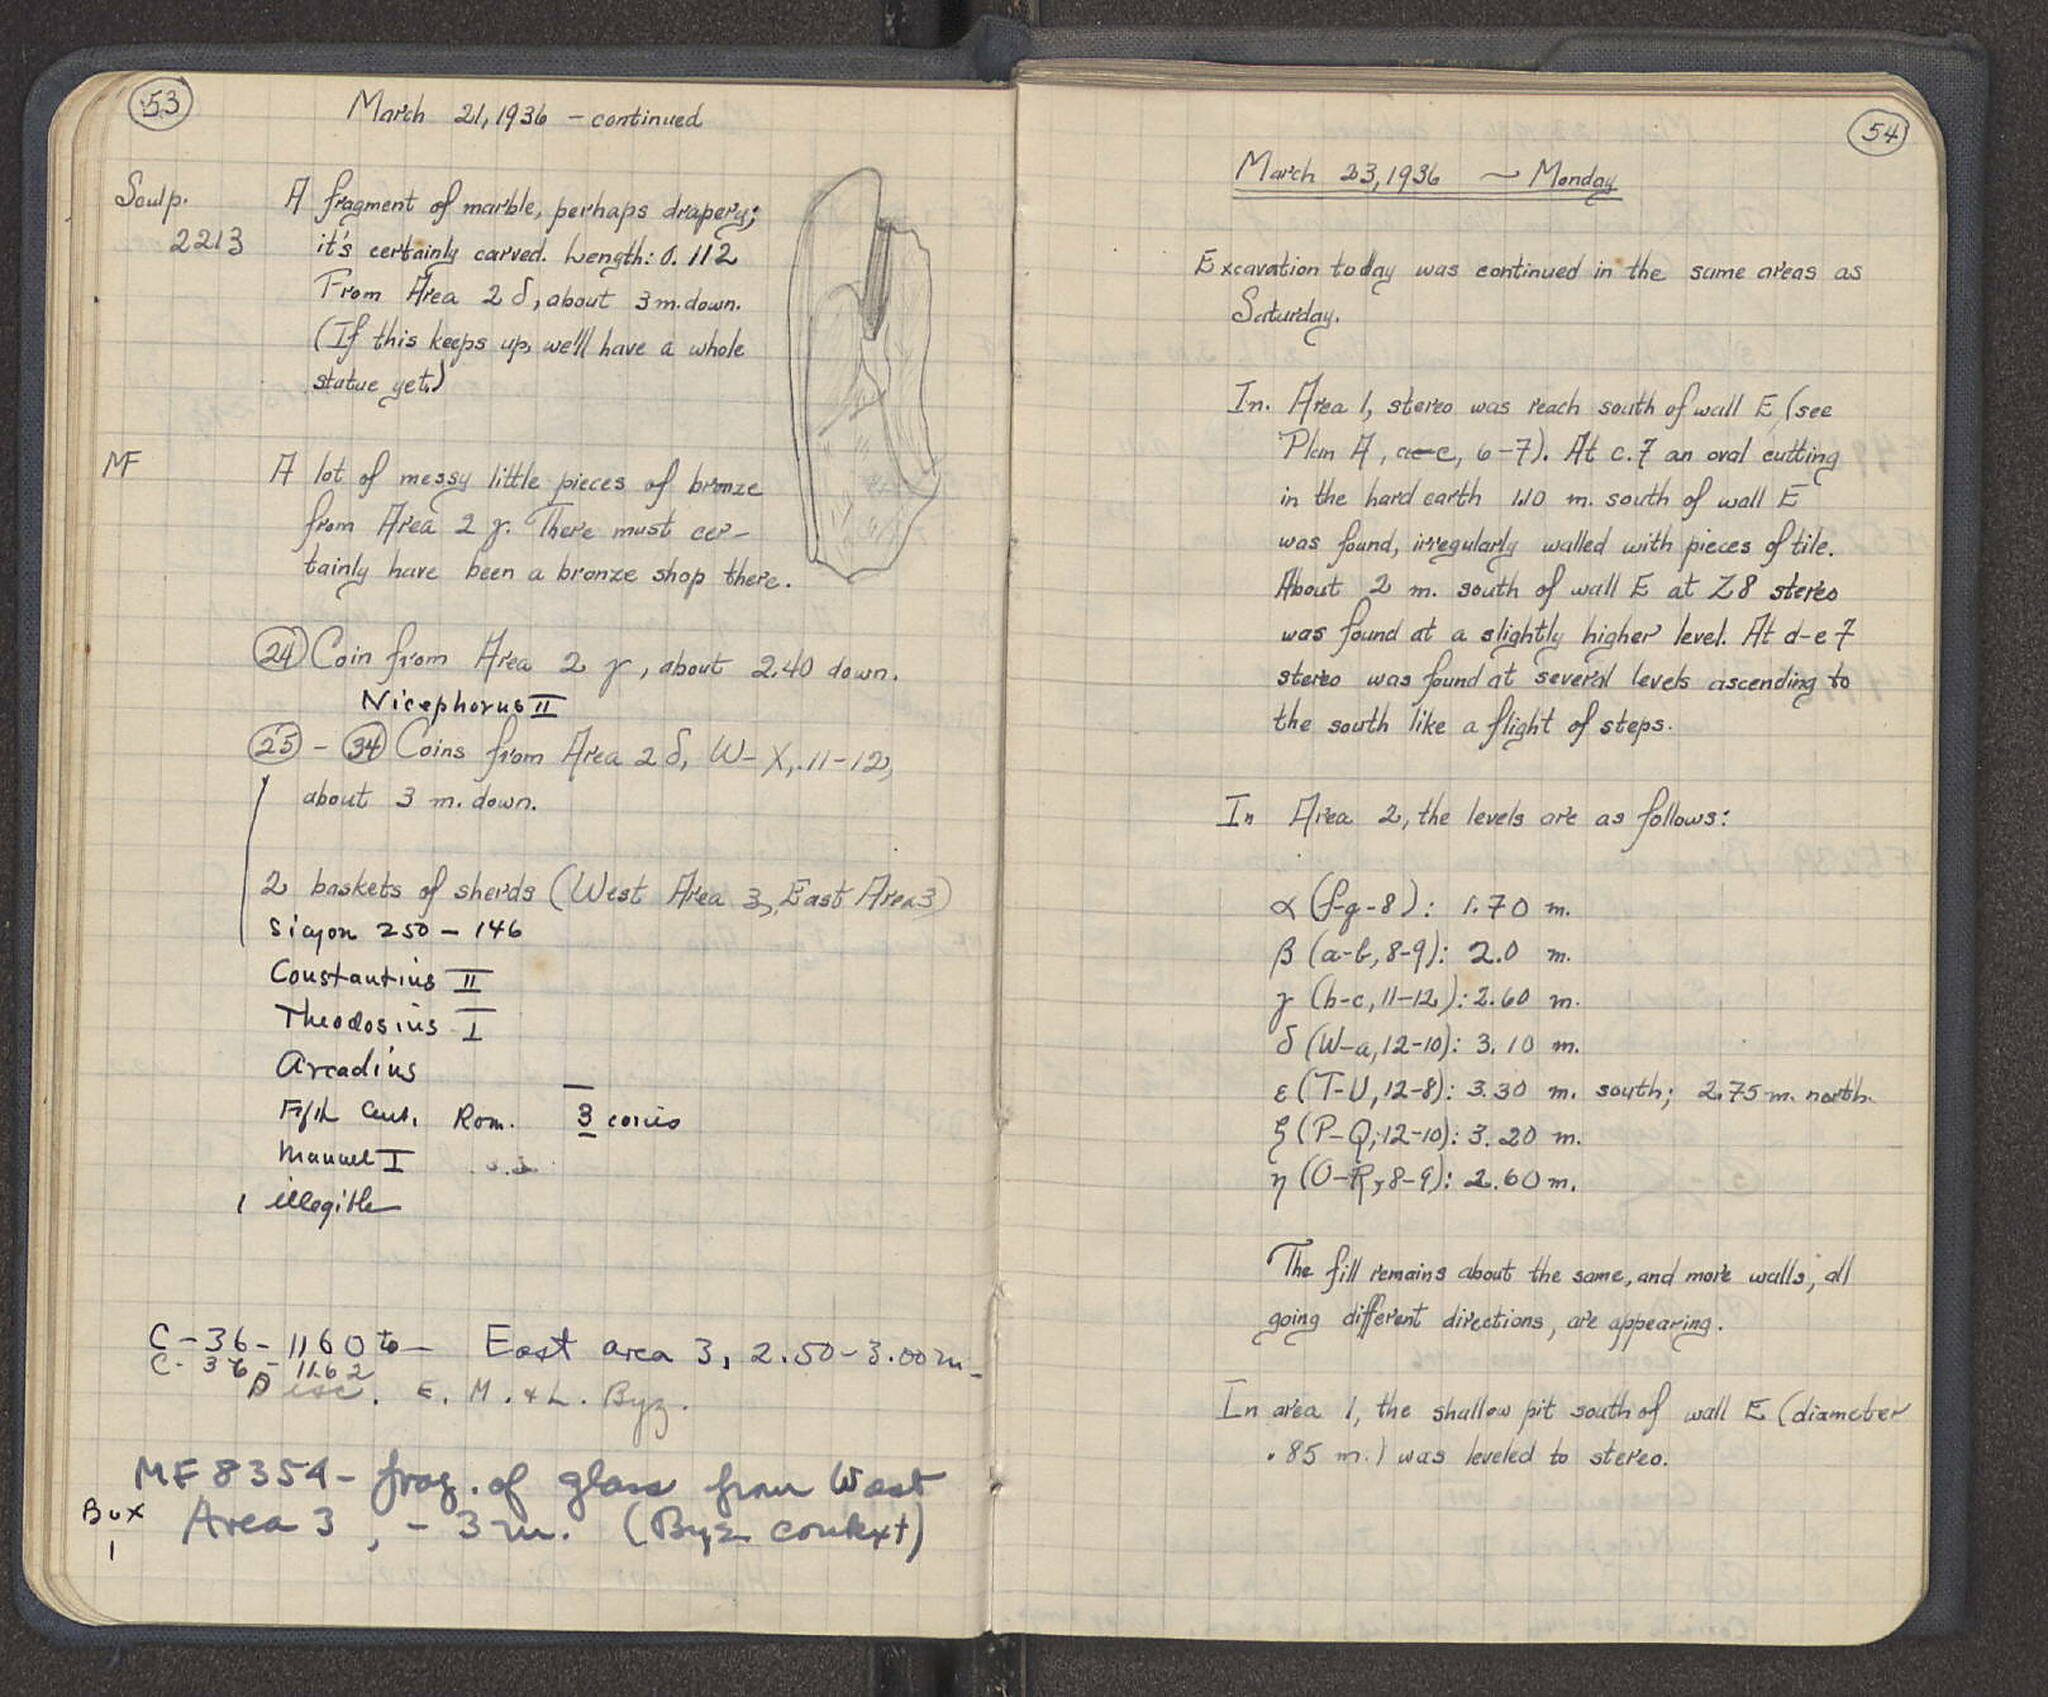 53
March 21, 1936 – continued
Sculp.
2213
A fragment of marble, perhaps drapery;
it's certainly carved. Length: 0.112
From Area 2 δ, about 3 m. down.
(If this keeps up, we'll have a whole
statue yet.)
MF
A lot of messy little pieces of bronze
from Area 2 γ. There must cer-
tainly have been a bronze shop there.
24 Coin from Area 2 γ, about 2.40 down.
Nicephorus II
25 – 34 Coins from Area 2 δ, W–X, 11–12,
about 3 m. down.
2 baskets of sherds (West Area 3, East Area 3)
Sicyon 250 – 146
Constantius II
Theodosius I
Arcadius
Fifth Cent. Rom. 3 coins
Manuel I
1 illegible
C-36-1160 to – East area 3, 2.50–3.00 m
C-36-1162
Disc. E. M. & L. Byz.
MF 8354 – frag. of glass from West
Area 3, – 3 m. (Byz context)
Box
1
54
March 23, 1936 ~ Monday
Excavation today was continued in the same areas as
Saturday.
In. Area 1, stereo was reach south of wall E, (see
Plan A, a–c, 6–7). At c.7 an oval cutting
in the hard earth 1.10 m. south of wall E
was found, irregularly walled with pieces of tile.
About 2 m. south of wall E at Z8 stereo
was found at a slightly higher level. At d-e 7
stereo was found at several levels ascending to
the south like a flight of steps.
In Area 2, the levels are as follows:
α (f-g-8): 1.70 m.
β (a-b, 8-9): 2.0 m.
γ (b-c, 11-12): 2.60 m.
δ (W-a, 12-10): 3.10 m.
ε (T-U, 12-8): 3.30 m. south; 2.75 m. north.
ζ (P-Q, 12-10): 3.20 m.
η (O-R, 8-9): 2.60 m.
The fill remains about the same, and more walls, all
going different directions, are appearing.
In area 1, the shallow pit south of wall E (diameter
.85 m.) was leveled to stereo.